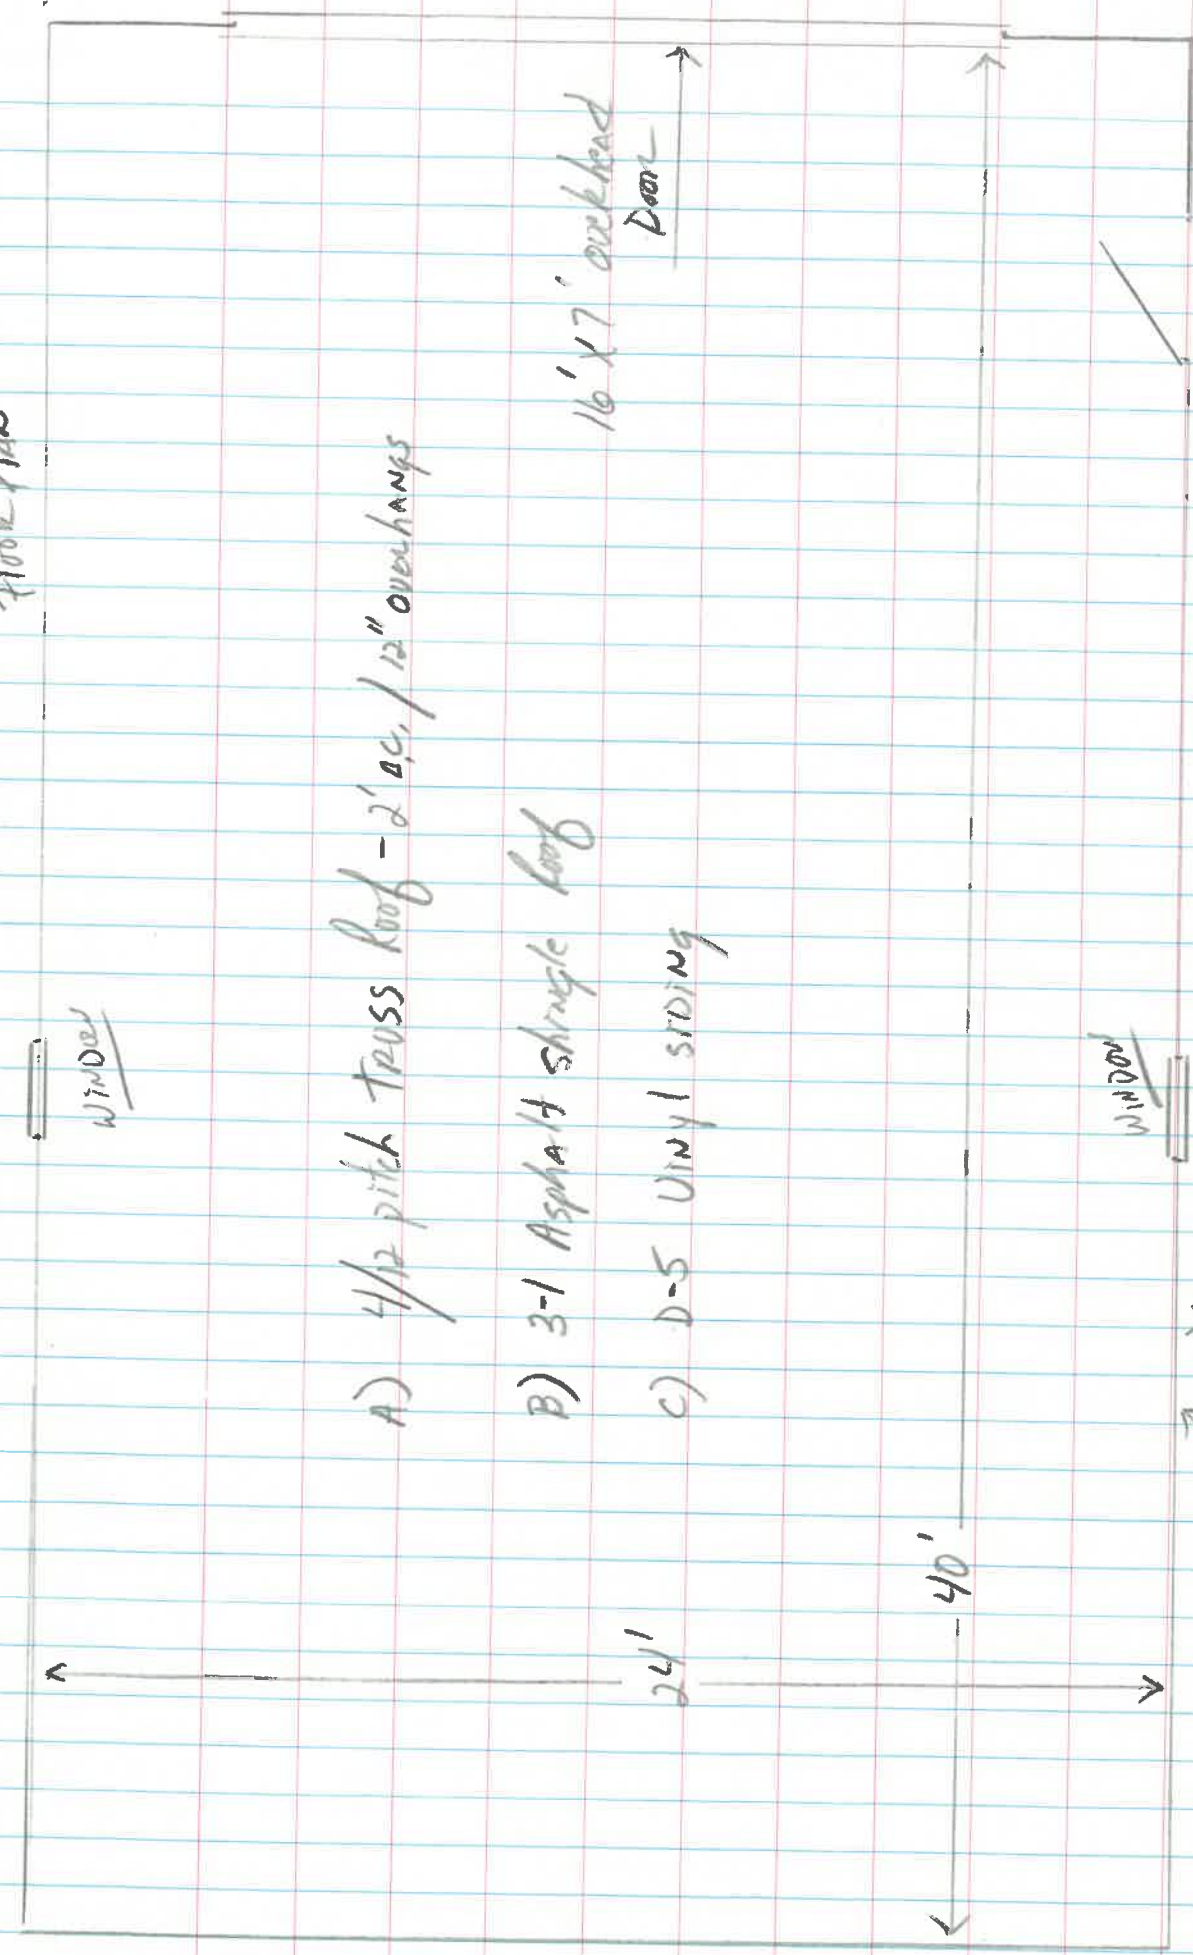 Floor Plan
Window
A) 4/12 pitch truss Roof - 2' o.c. / 12" overhangs
B) 3-1 Asphalt shingle Roof
C) D-5 Vinyl siding
16' X 7' overhead
Door
24'
40'
Window